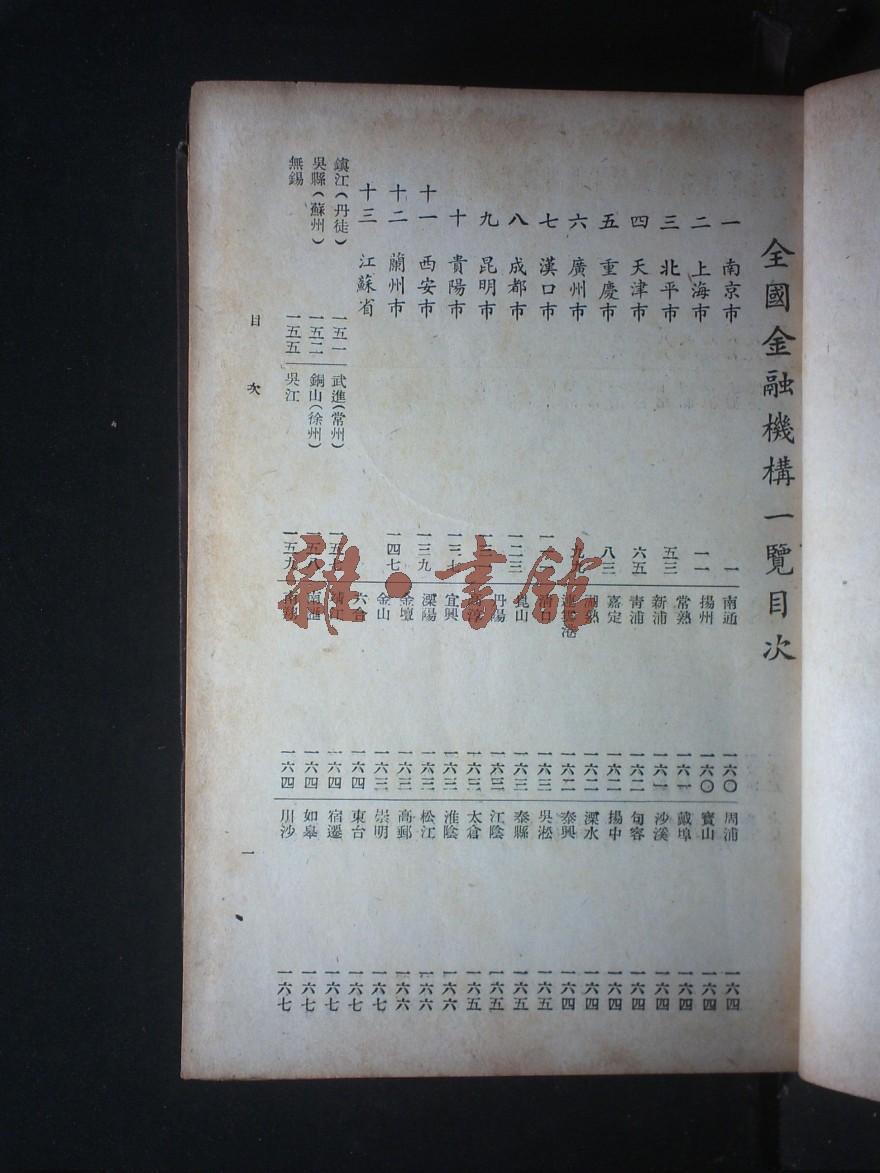 全國金融機構一覽目次
一 南京市 一
二 上海市 一一
三 北平市 五三
四 天津市 六五
五 重慶市 八三
六 廣州市 九九
七 漢口市
八 成都市 一二三
九 昆明市
十 貴陽市 一三七
十一 西安市 一三九
十二 蘭州市 一四七
十三 江蘇省
鎮江(丹徒) 一五一
吳縣(蘇州) 一五二
無錫 一五五
武進(常州)
銅山(徐州) 一五八
吳江 一五九
南通 一六〇
揚州 一六〇
常熟 一六一
新浦 一六一
青浦 一六二
嘉定 一六二
湖熟 一六二
連雲港 一六二
一六三
崑山 一六三
丹陽 一六三
一六三
宜興 一六三
溧陽 一六三
金壇 一六三
金山 一六三
六合 一六四
靖江 一六四
南匯 一六四
南翔 一六四
周浦 一六四
寶山 一六四
戴埠 一六四
沙溪 一六四
句容 一六四
揚中 一六四
溧水 一六四
泰興 一六四
吳淞 一六五
泰縣 一六五
江陰 一六五
太倉 一六五
淮陰 一六六
松江 一六六
高郵 一六六
崇明 一六七
東台 一六七
宿遷 一六七
如皋 一六七
川沙 一六七
目次
一
雜·書館